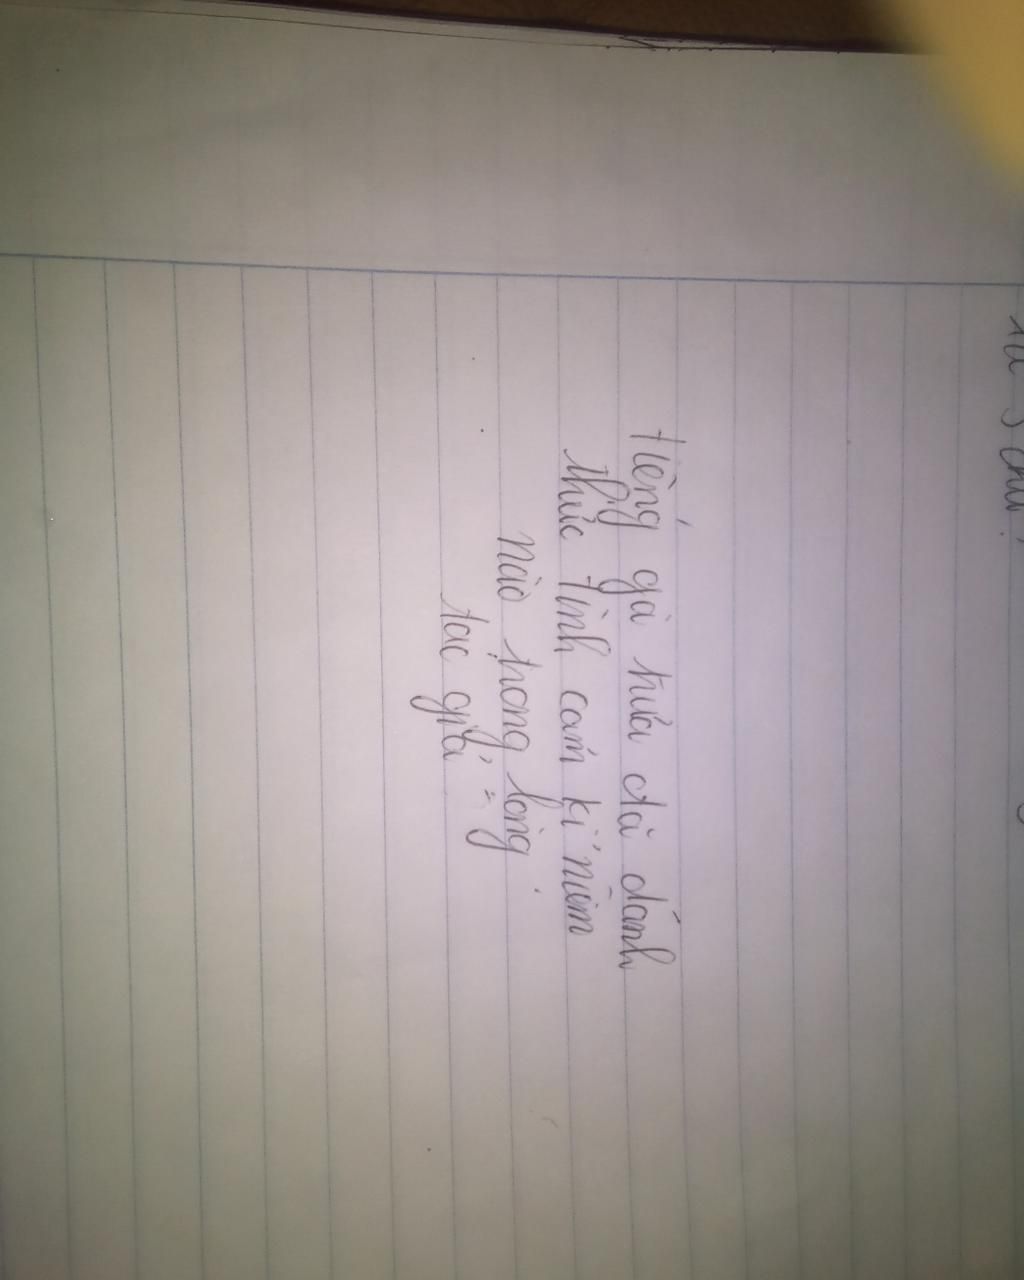 tiếng gà trưa đã đánh
thức tình cảm kỉ niệm
nào trong lòng
tác giả